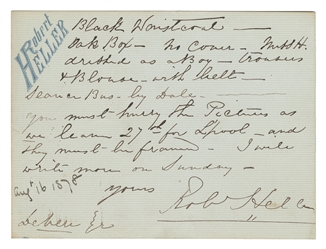 Robert
HELLER
Black Waistcoat —
Oak Box — no cover — Miss H.
dressed as a Boy — trousers
& Blouse — with belt —
Seance Bus. by Dale —
you must hurry the Pictures as
we leave 27th for Lpool — and
they must be framed — I will
write more on Sunday —
Augt 16 1878
yours
Robt Heller
DeVere Esq